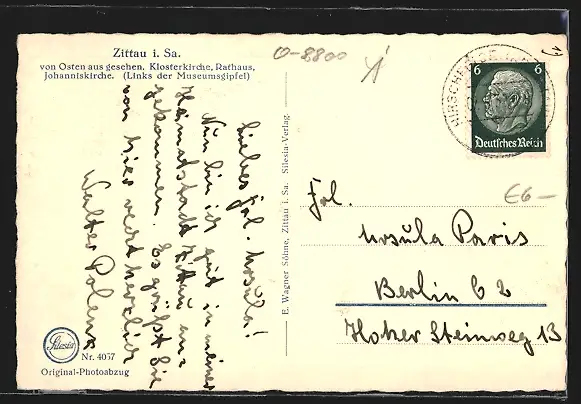 Zittau i. Sa.
von Osten aus gesehen. Klosterkirche, Rathaus,
Johanniskirche. (Links der Museumsgipfel)
Liebes Frl. Ursula!
Nun bin ich gut in meiner
Heimatstadt Zittau an-
gekommen. Es grüßt Sie
von hier recht herzlich
Walter Polenz
Silesia
Nr. 4037
Original-Photoabzug
E. Wagner Söhne, Zittau i. Sa. Silesia-Verlag.
0-8800
HIRSCHFELDE
6 6
Deutsches Reich
€6-
Frl.
Ursula Paris
Berlin C 2
Hoher Steinweg 13